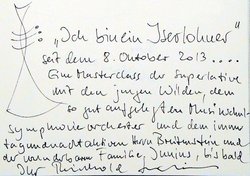 „Ich bin ein Iserlohner"
seit dem 8. Oktober 2013 ....
Eine Masterclass der Superlative
mit den jungen Wilden, dem
so gut aufgelegten Musikschul-
symphonieorchester und dem immer
tagundnachtaktiven Herrn Breitenstein und
der wunderbaren Familie Junius, bis bald
Ihr